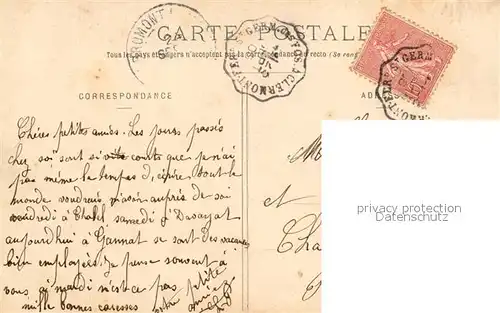 CARTE POSTALE
Tous les pays étrangers n'acceptent pas la correspondance au recto (Se ren
CORRESPONDANCE
AD
Chères petites amies. Les jours passés
chez soi sont si vite courts que je n'ai
pas même le temps d'écrire tout le
monde voudrais m'avoir auprès de soi
vendredi à samedi à
aujourd'hui à Gannat ce sont des vacances
bien employées. Je pense souvent à
vous à mardi n'est ce pas
mille bonnes caresses votre petite
amie
M
et
Cha
privacy protection
Datenschutz